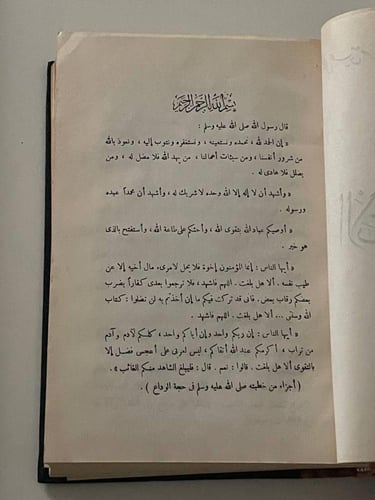 بسم الله الرحمن الرحيم
قال رسول الله صلى الله عليه وسلم :
« إن الحمد لله ، نحمده ونستعينه ، ونستغفره ونتوب إليه ، ونعوذ بالله
من شرور أنفسنا ، ومن سيئات أعمالنا ، من يهد الله فلا مضل له ، ومن
يضلل فلا هادى له .
« وأشهد أن لا إله إلا الله وحده لا شريك له ، وأشهد أن محمداً عبده
ورسوله .
« أوصيكم عباد الله بتقوى الله ، وأحثكم على طاعة الله ، وأستفتح بالذى
هو خير .
« أيها الناس : إنما المؤمنون إخوة فلا يحل لامرىء مال أخيه إلا عن
طيب نفسه . ألا هل بلغت . اللهم فاشهد ، فلا ترجعوا بعدى كفاراً يضرب
بعضكم رقاب بعض . فانى قد تركت فيكم ما إن أخذتم به لن تضلوا : كتاب
الله وسنتى ... ألا هل بلغت . اللهم فاشهد .
« أيها الناس : إن ربكم واحد وإن أباكم واحد ، كلكم لآدم وآدم
من تراب ، أكرمكم عند الله أتقاكم ، ليس لعربى على أعجمى فضل إلا
بالتقوى ألا هل بلغت . قالوا : نعم . قال : فليبلغ الشاهد منكم الغائب » .
( أجزاء من خطبته صلى الله عليه وسلم فى حجة الوداع ) .